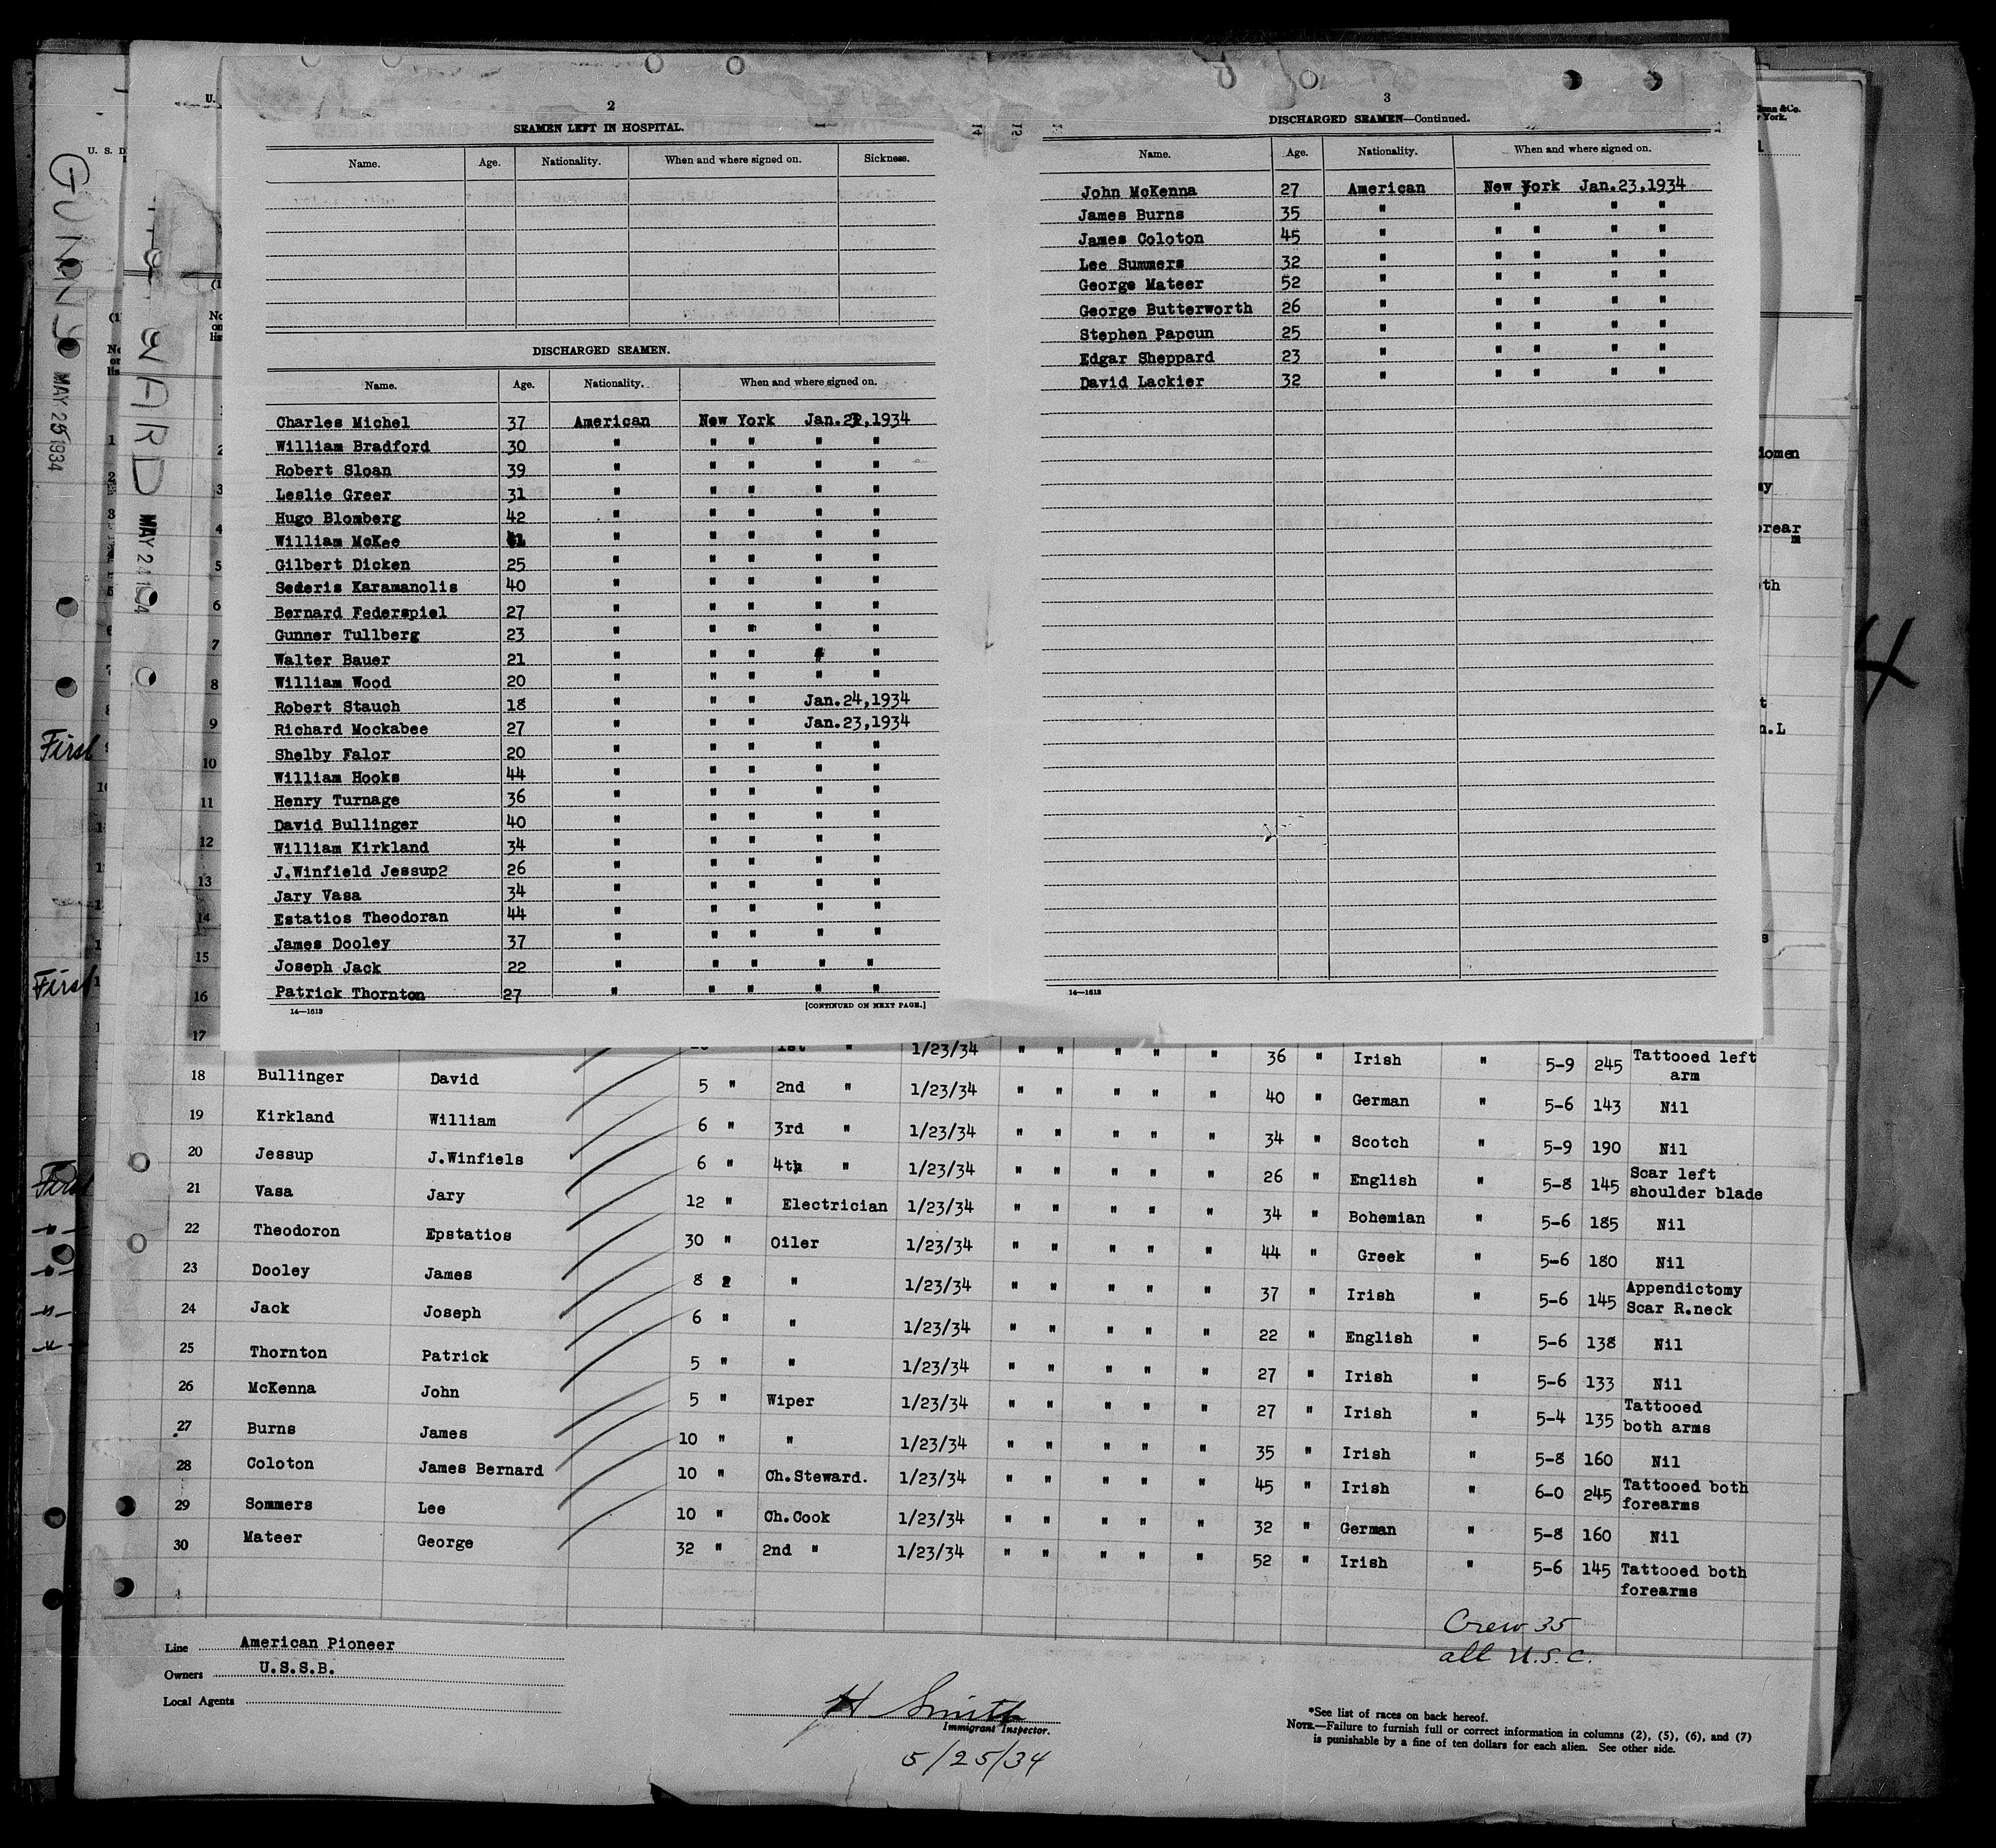 2
SEAMEN LEFT IN HOSPITAL.
Name. Age. Nationality. When and where signed on. Sickness.
DISCHARGED SEAMEN.
Name. Age. Nationality. When and where signed on.
Charles Michel 37 American New York Jan.22,1934
William Bradford 30 " " " " "
Robert Sloan 39 " " " " "
Leslie Greer 31 " " " " "
Hugo Blomberg 42 " " " " "
William McKee 41 " " " " "
Gilbert Dicken 25 " " " " "
Sederis Karamanolis 40 " " " " "
Bernard Federspiel 27 " " " " "
Gunner Tullberg 23 " " " " "
Walter Bauer 21 " " " " "
William Wood 20 " " " " "
Robert Stauch 18 " " " Jan.24,1934
Richard Mockabee 27 " " " Jan.23,1934
Shelby Falor 20 " " " " "
William Hooks 44 " " " " "
Henry Turnage 36 " " " " "
David Bullinger 40 " " " " "
William Kirkland 34 " " " " "
J.Winfield Jessup2 26 " " " " "
Jary Vasa 34 " " " " "
Estatios Theodoran 44 " " " " "
James Dooley 37 " " " " "
Joseph Jack 22 " " " " "
Patrick Thornton 27 " " " " "
14—1613 [CONTINUED ON NEXT PAGE.]
3
DISCHARGED SEAMEN—Continued.
Name. Age. Nationality. When and where signed on.
John McKenna 27 American New York Jan.23,1934
James Burns 35 " " " "
James Coloton 45 " " " " "
Lee Summers 32 " " " " "
George Mateer 52 " " " " "
George Butterworth 26 " " " " "
Stephen Papcun 25 " " " " "
Edgar Sheppard 23 " " " " "
David Lackier 32 " " " " "
14—1613
GUNNY MAY 25 1934
WARD MAY 24 1934
First
First
First
17 1st " 1/23/34 " " " " " 36 " Irish " 5-9 245 Tattooed left arm
18 Bullinger David 5 " 2nd " 1/23/34 " " " " " 40 " German " 5-6 143 Nil
19 Kirkland William 6 " 3rd " 1/23/34 " " " " " 34 " Scotch " 5-9 190 Nil
20 Jessup J.Winfiels 6 " 4th " 1/23/34 " " " " " 26 " English " 5-8 145 Scar left shoulder blade
21 Vasa Jary 12 " Electrician 1/23/34 " " " " " 34 " Bohemian " 5-6 185 Nil
22 Theodoron Epstatios 30 " Oiler 1/23/34 " " " " " 44 " Greek " 5-6 180 Nil
23 Dooley James 8 " " 1/23/34 " " " " " 37 " Irish " 5-6 145 Appendictomy Scar R.neck
24 Jack Joseph 6 " " 1/23/34 " " " " " 22 " English " 5-6 138 Nil
25 Thornton Patrick 5 " " 1/23/34 " " " " " 27 " Irish " 5-6 133 Nil
26 McKenna John 5 " Wiper 1/23/34 " " " " " 27 " Irish " 5-4 135 Tattooed both arms
27 Burns James 10 " " 1/23/34 " " " " " 35 " Irish " 5-8 160 Nil
28 Coloton James Bernard 10 " Ch.Steward. 1/23/34 " " " " " 45 " Irish " 6-0 245 Tattooed both forearms
29 Sommers Lee 10 " Ch.Cook 1/23/34 " " " " " 32 " German " 5-8 160 Nil
30 Mateer George 32 " 2nd " 1/23/34 " " " " " 52 " Irish " 5-6 145 Tattooed both forearms
Crew 35
all U.S.C.
Line American Pioneer
Owners U.S.S.B.
Local Agents
H Smith
Immigrant Inspector.
5/25/34
*See list of races on back hereof.
NOTE.—Failure to furnish full or correct information in columns (2), (5), (6), and (7)
is punishable by a fine of ten dollars for each alien. See other side.